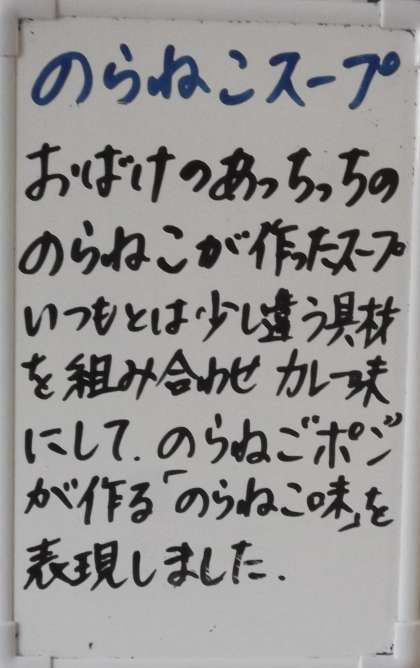 のらねこスープ
おばけのあっちっちの
のらねこが作ったスープ
いつもとは少し違う具材
を組み合わせ カレー味
にして.のらねごボジ
が作る「のらねこ味」を
表現しました.